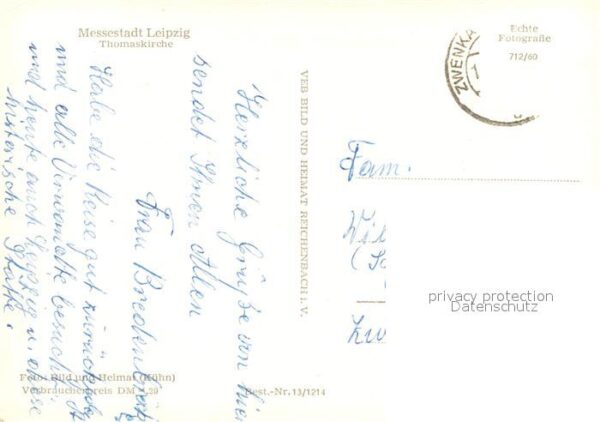 Messestadt Leipzig
Thomaskirche
Echte
Fotografie
712/60
ZWENKA
VEB BILD UND HEIMAT REICHENBACH i. V.
Herzliche Grüße von hier
sendet Ihnen Allen
Frau
Habe die Reise gut
und alle Verwandte besucht
und heute auch Leipzig u. diese
historische Stätte.
Fam.
Wil
(
Zw
privacy protection
Datenschutz
Foto: Bild und Heimat (Kühn)
Verbraucherpreis DM 0,20
Best.-Nr. 13/1214